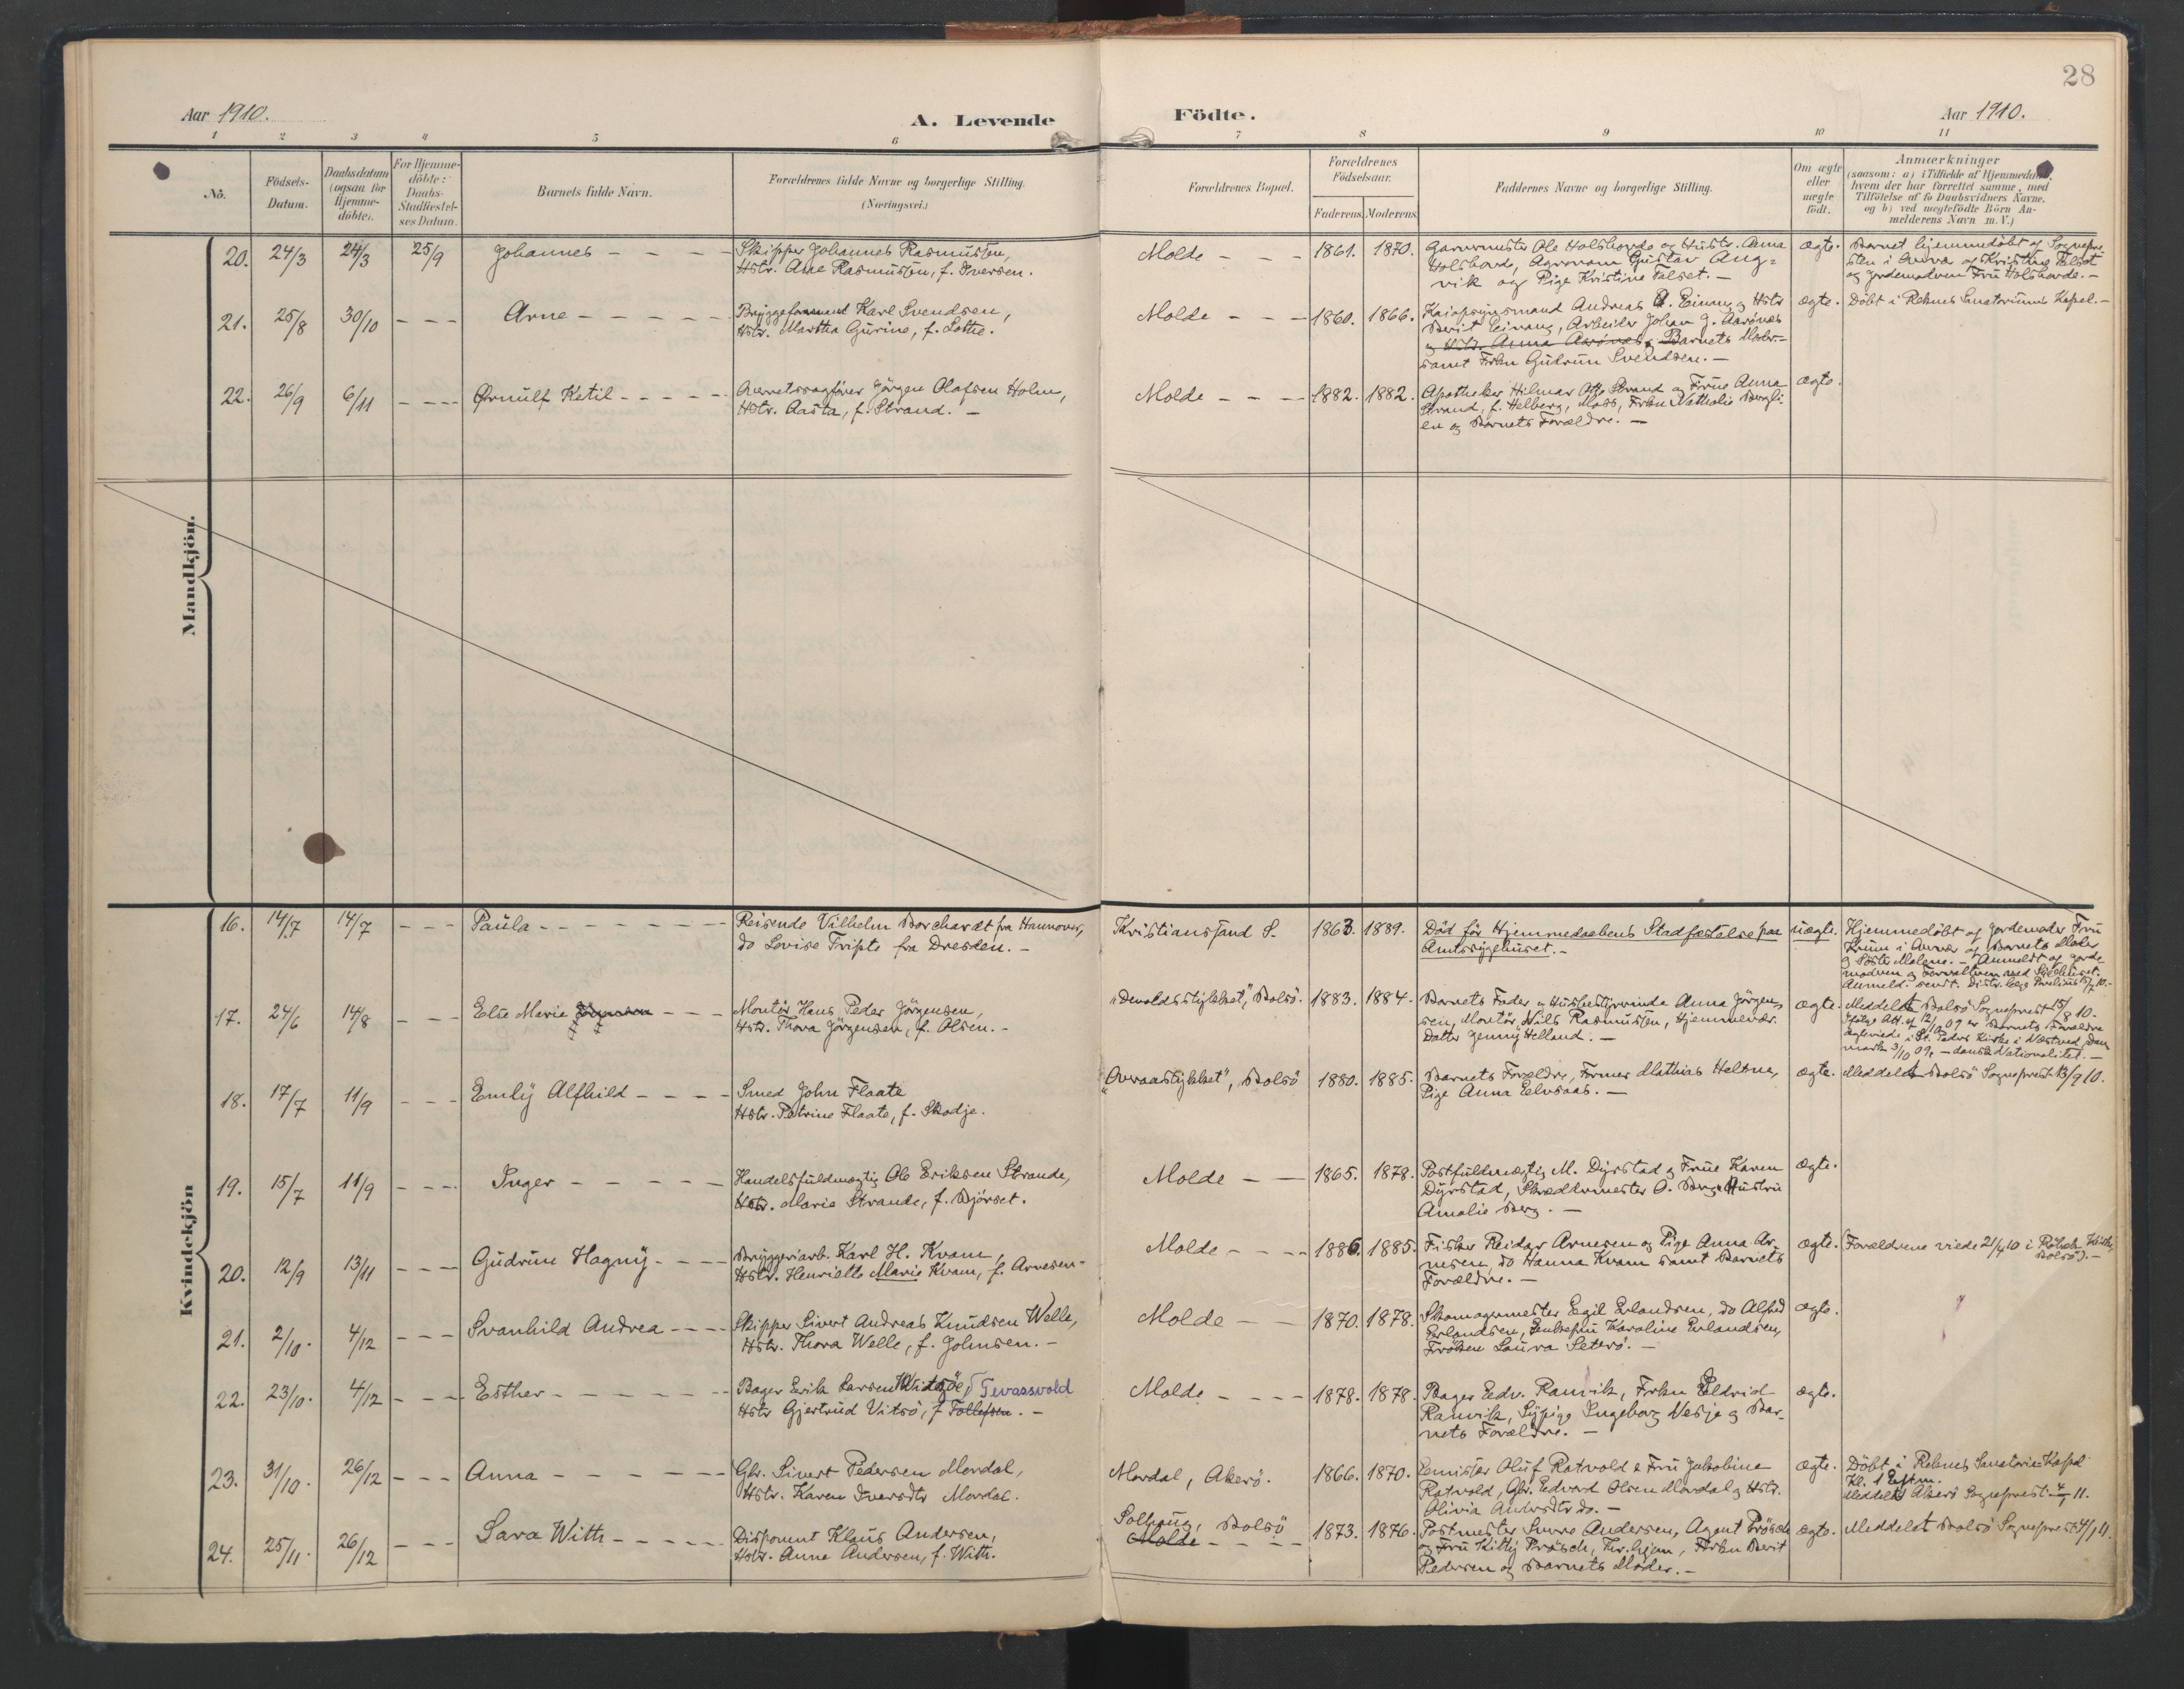 28
Aar 1910.
A. Levende
Födte.
Aar 1910.
1 2 3 4 5 6 7 8 9 10 11
No.
Födsels-
Datum.
Daabsdatum
(ogsaa for
Hjemme-
döbte).
For Hjemme-
döbte:
Daabs-
Stadfæstel-
ses Datum.
Barnets fulde Navn.
Forældrenes fulde Navne og borgerlige Stilling.
(Næringsvei.)
Forældrenes Bopæl.
Forældrenes
Födselsaar.
Faderens. Moderens.
Faddernes Navne og borgerlige Stilling.
Om ægte
eller
uægte
födt.
Anmærkninger
(saasom: a) i Tilfælde af Hjemmedaab,
hvem der har forrettet samme, med
Tilföielse af to Daabsvidners Navne,
og b) ved uægtefödte Börn An-
melderens Navn m. V.)
Mandkjön.
20. 24/3 24/3 25/9 Johannes - - - -
Skipper Johannes Rasmussen,
Hstr. Ane Rasmussen, f. Iversen.
Molde - - - 1861. 1870.
Garvermester Ole Holsbovde og Hustr. Anna
Holsbovde, Agronom Gustav Ang=
vik og Pige Kristine Talset. -
ægte.
Barnet hjemmedöbt af Sognepre-
sten i Nærvær af Kristine Talset
og Jordemodren Fru Holsbovde. -
21. 25/8 30/10 - - - Arne - - - - -
Bryggeformand Karl Svendsen,
Hstr. Martha Gurine, f. Lothe.
Molde - - - 1860. 1866.
Kaiopsynsmand Andreas A. Einang og Hstr
Berit Einang, Arbeider Johan J. Aarönes
og Hstr. Anna Aarönes, Barnets Moder
samt Frkn Gudrun Svendsen. -
ægte.
Döbt i Reknes Sanatoriums Kapel. -
22. 26/9 6/11 - - - Ørnulf Ketil - - - - -
Overretssagförer Jörgen Olafsen Holm,
Hstr. Aasta, f. Strand. -
Molde - - - 1882. 1882.
Apotheker Hilmar Otto Strand og Frue Anna
Strand, f. Helberg, Moss, Frkn Nathalie Bergli-
en og Barnets Forældre. -
ægte.
Kvindekjön
16. 14/7 14/7 - - - Paula - - - - - - -
Reisende Vilhelm Borchardt fra Hannover,
do Lovise Fripte fra Dresden. -
Kristiansand S. 1863. 1889.
Död för Hjemmedaabens Stadfæstelse paa
Amtssygehuset. -
uægte.
Hjemmedöbt af Jordemoder Fru
Krum i Nærvær af Barnets Moder
og Söster Malene. - Anmeldt af Jorde-
modren og Forvalteren ved Sygehuset.
17. 24/6 14/8 - - - Else Marie Jörgensen - - -
Montör Hans Peder Jörgensen,
Hstr. Thora Jörgensen, f. Olsen. -
"Devoldsstykket", Bolsö. 1883. 1884.
Barnets Fader og Husbestyrerinde Anna Jörgen-
sen, Montör Nils Rasmussen, Hjemmevær.
Datter Jenny Helland. -
ægte.
Meddelt Bolsö Sognepræst 15/8 10.
Ifölge Att. af 12/10 09 er Barnets Forældre
ægteviede i St. Peders Kirke i Næstved, Dan-
mark 3/10 09. - dansk Nationalitet. -
18. 17/7 11/9 - - - Emly Alfhild - - - -
Smed John Flaate
Hstr. Petrine Flaate, f. Skodje.
"Overaastykket", Bolsö 1880. 1885.
Barnets Forældre, Former Mathias Heltne,
Pige Anna Eelvsaas. -
ægte.
Meddelt Bolsö Sognepræst 13/9 10.
19. 15/7 11/9 - - - Inger - - - - -
Handelsfuldmægtig Ole Eriksen Strande,
Hstr. Marie Strande, f. Björset.
Molde - - 1865. 1878.
Postfuldmægtig M. Dyrstad og Frue Karen
Dyrstad, Skræddermester O. Berg, Hustru
Amalie Berg. -
ægte.
20. 12/9 13/11 - - - Gudrun Hagny - - - -
Bryggeriarb. Karl H. Kvam,
Hstr. Henriette Marie Kvam, f. Arnesen-
Molde - - - - 1886. 1885.
Fisker Reidar Arnesen og Pige Anna Ar-
nesen, do Hanna Kvam samt Barnets
Forældre. -
ægte.
(Forældrene viede 21/4 10 i Röbek Kirke,
Bolsö). -
21. 2/10. 4/12 - - - Svanhild Andrea - - -
Skipper Sivert Andreas Knudsen Welle,
Hstr. Thora Welle, f. Johnsen. -
Molde - - 1870. 1878.
Skomagermester Egil Erlandsen, do Alfred
Erlandsen, Enkefru Karoline Erlandsen,
Fröken Laura Seterö. -
ægte.
22. 23/10. 4/12 - - - Esther - - - - - - -
Bager Erik Larsen Widsöe, Tevassvold
Hstr Gjertrud Vitsö, f Tollefsen. -
Molde - - - - 1878. 1878.
Bager Edv. Ranvik, Frkn Eldrid
Ranvik, Sypige Ingeborg Nesje og Bar-
nets Forældre. -
ægte.
23. 31/10. 26/12 - - - Anna - - - - - -
Gbr. Sivert Pedersen Mordal,
Hstr. Karen Iversdtr Mordal.
Mordal, Akerö. 1866. 1870.
Emissær Oluf Ratvold & Fru Jakobine
Ratvold, Gbr. Edvard Olsen Mordal og Hstr.
Olivia Andersdtr do. -
ægte.
Döbt i Reknes Sanatorie-Kapel
Kl. 1 Eftm.
Meddelt Akerö Sognepræst 4/1 11.
24. 25/11. 26/12 - - - Sara With - - - - -
Disponent Klaus Andersen,
Hstr. Anna Andersen, f. With.
Solhaug, Bolsö
Molde - - - 1873. 1876.
Postmester Sverre Andersen, Agent Prösch
og Fru Kitty Prösch, Thr.hjem, Frkn Berit
Pedersen og Barnets Moder. -
ægte.
Meddelt Bolsö Sognepræst 4/1 11.